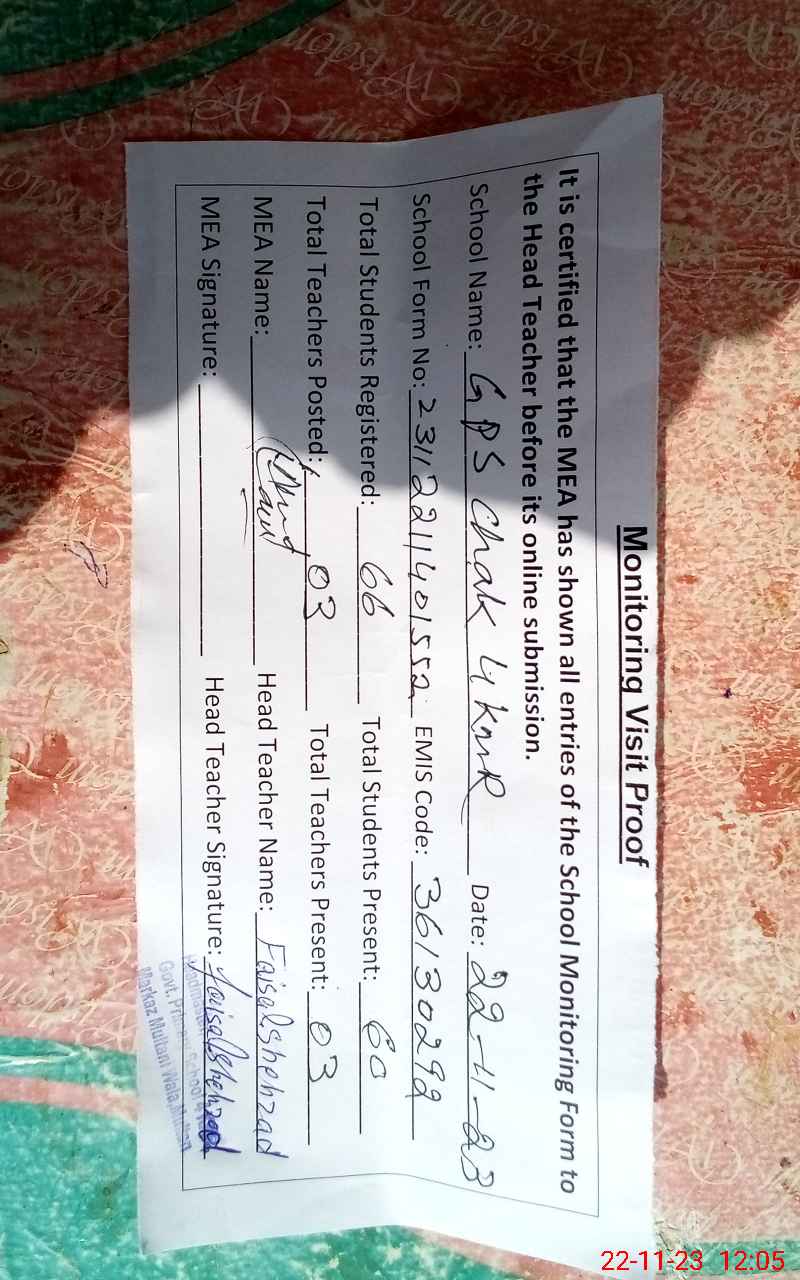 Monitoring Visit Proof
It is certified that the MEA has shown all entries of the School Monitoring Form to
the Head Teacher before its online submission.
School Name: GPS Chak 4 KMR Date: 22-11-23
School Form No: 23112211401552 EMIS Code: 36130292
Total Students Registered: 66 Total Students Present: 60
Total Teachers Posted: 03 Total Teachers Present: 03
MEA Name: Head Teacher Name: Faisal Shehzad
MEA Signature: Head Teacher Signature: Faisal Shehzad
Headmaster
Govt. Primary School 4
Markaz Multani Wala, Multan
22-11-23 12:05